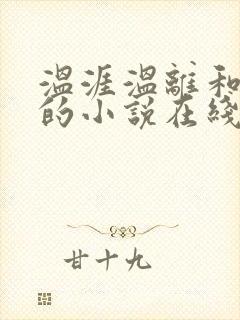 温涯温離和
的小说在綫
甘十九